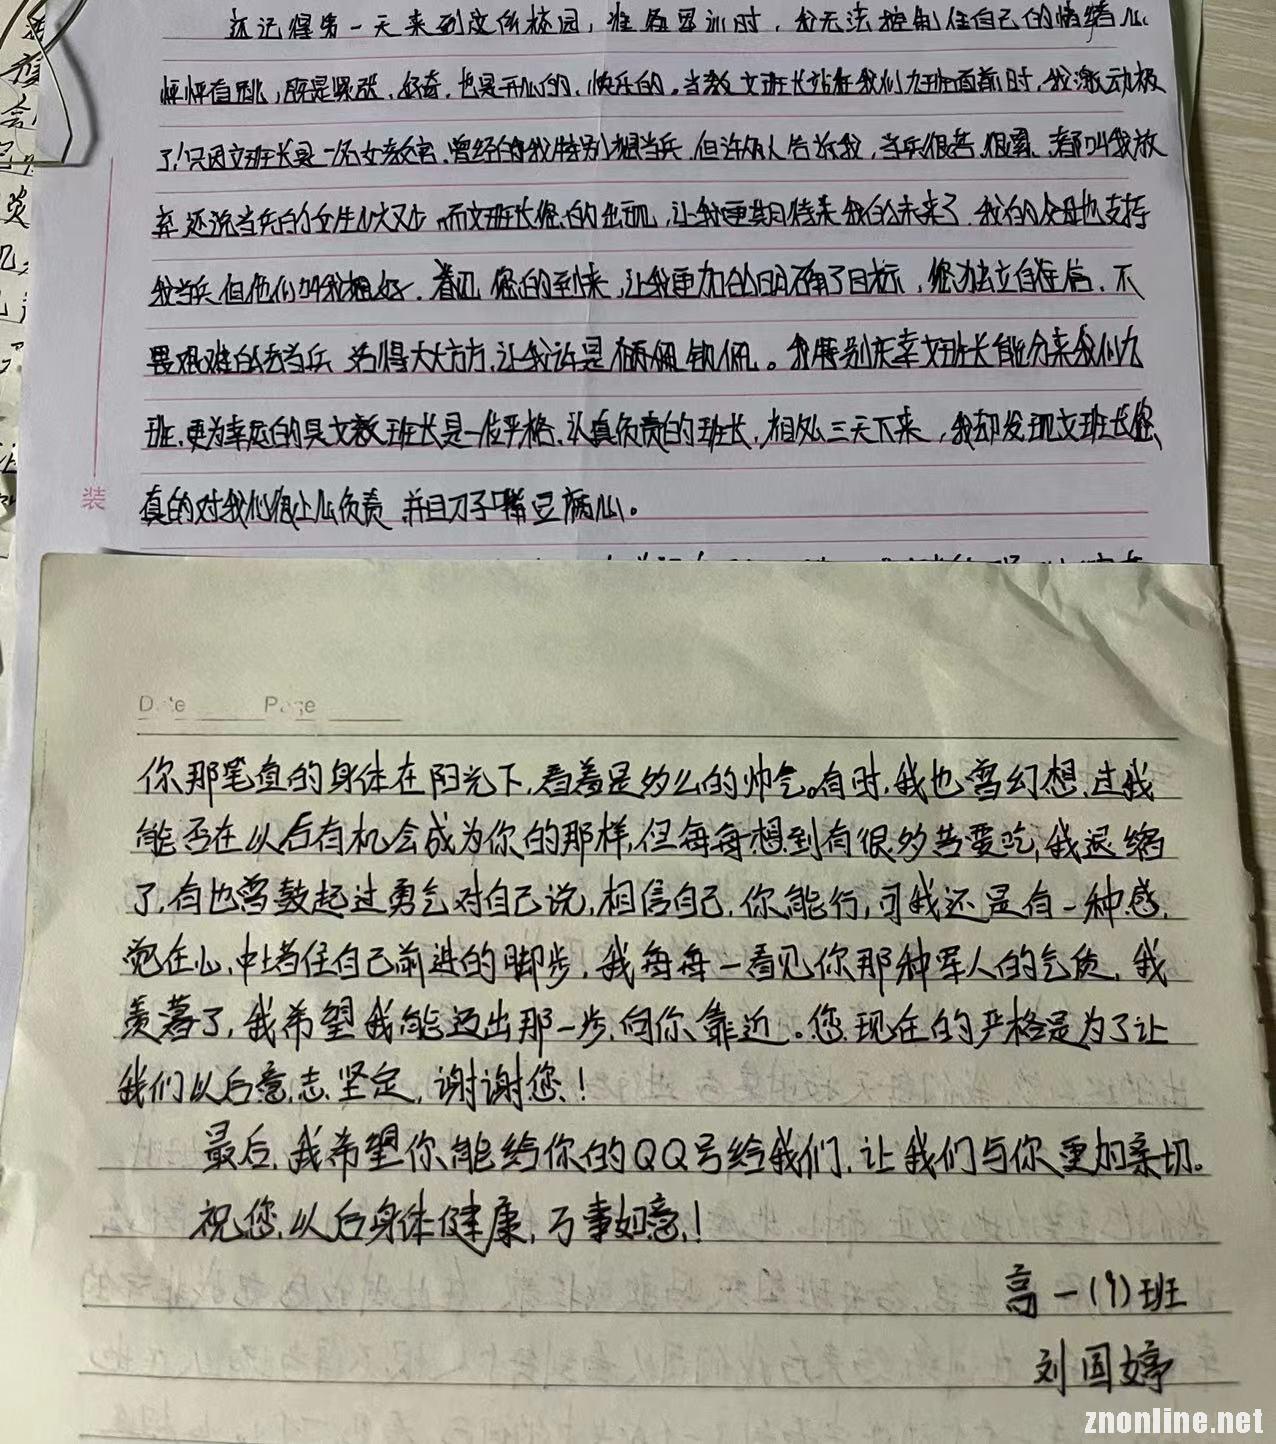 还记得第一天来到这所校园，准备军训时，我无法控制住自己的情绪心
怦怦直跳，既是紧张、好奇，也是开心的、快乐的。当教 文班长站在我们九班面前时，我激动极
了！只因文班长是一名女教官，曾经的我特别想当兵，但许多人告诉我，当兵很苦、很累、都叫我放
弃还说当兵的女生少又少，而文班长您的出现，让我更期待未来我的未来了，我的父母也支持
我当兵但他们叫我想好，看见 您的到来，让我更加的明确了目标，您独立自信，不
畏艰难的去当兵 活得大大方方，让我许是 佩 钦佩。我特别庆幸文班长能分来我们九
班，更为幸运的是文教班长是一位严格、认真负责的班长，相处三天下来，我却发现文班长您
真的对我们很上心负责 并且刀子嘴豆腐心。
装
Date Page
你那笔直的身体在阳光下，看着是多么的帅气。有时，我也曾幻想过我
能否在以后有机会成为你的那样，但每每想到有很多苦要吃，我退缩
了，有也曾鼓起过勇气对自己说，相信自己，你能行，可我还是有一种感
觉在心中堵住自己前进的脚步，我每每一看见你那种军人的气质，我
羡慕了，我希望我能迈出那一步，向你靠近。您现在的严格是为了让
我们以后意志坚定，谢谢您！
最后，我希望你能给你的QQ号给我们，让我们与你更加亲切。
祝您以后身体健康，万事如意！
高一(9)班
刘国婷
znonline.net